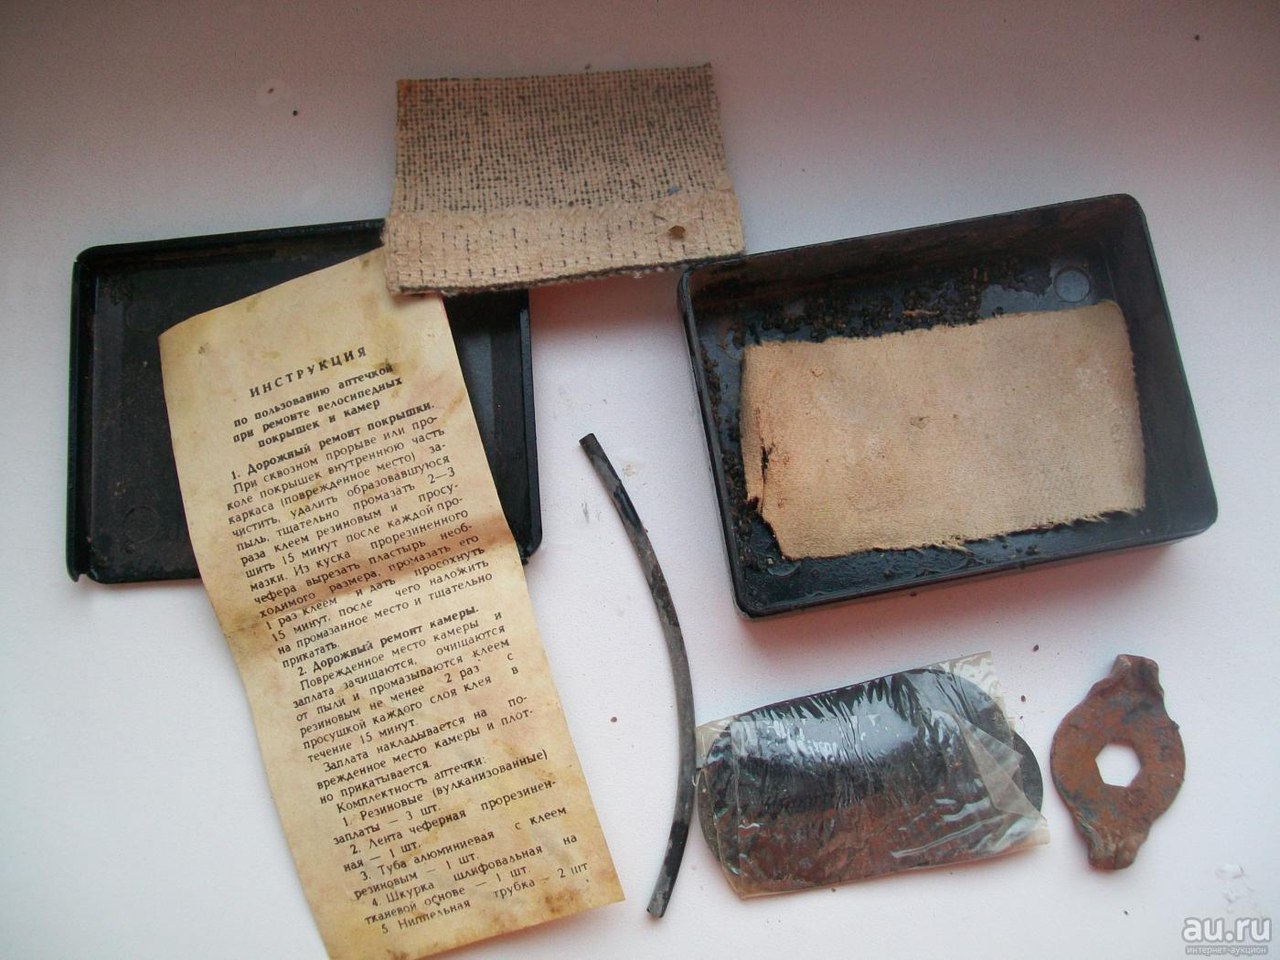 ИНСТРУКЦИЯ
по пользованию аптечкой
при ремонте велосипедных
покрышек и камер
1. Дорожный ремонт покрышки.
При сквозном прорыве или про-
коле покрышек внутреннюю часть
каркаса (поврежденное место) за-
чистить, удалить образовавшуюся
пыль, тщательно промазать 2—3
раза клеем резиновым и просу-
шить 15 минут после каждой про-
мазки. Из куска прорезиненного
чефера вырезать пластырь необ-
ходимого размера, промазать его
1 раз клеем и дать просохнуть
15 минут, после чего наложить
на промазанное место и тщательно
прикатать.
2. Дорожный ремонт камеры.
Поврежденное место камеры и
заплата зачищаются, очищаются
от пыли и промазываются клеем
резиновым не менее 2 раз с
просушкой каждого слоя клея в
течение 15 минут.
Заплата накладывается на по-
врежденное место камеры и плот-
но прикатывается.
Комплектность аптечки:
1. Резиновые (вулканизованные)
заплаты — 3 шт.
2. Лента чеферная прорезинен-
ная — 1 шт.
3. Туба алюминиевая с клеем
резиновым — 1 шт.
4. Шкурка шлифовальная на
тканевой основе — 1 шт.
5 Ниппельная трубка — 2 шт
au.ru
интернет-аукцион